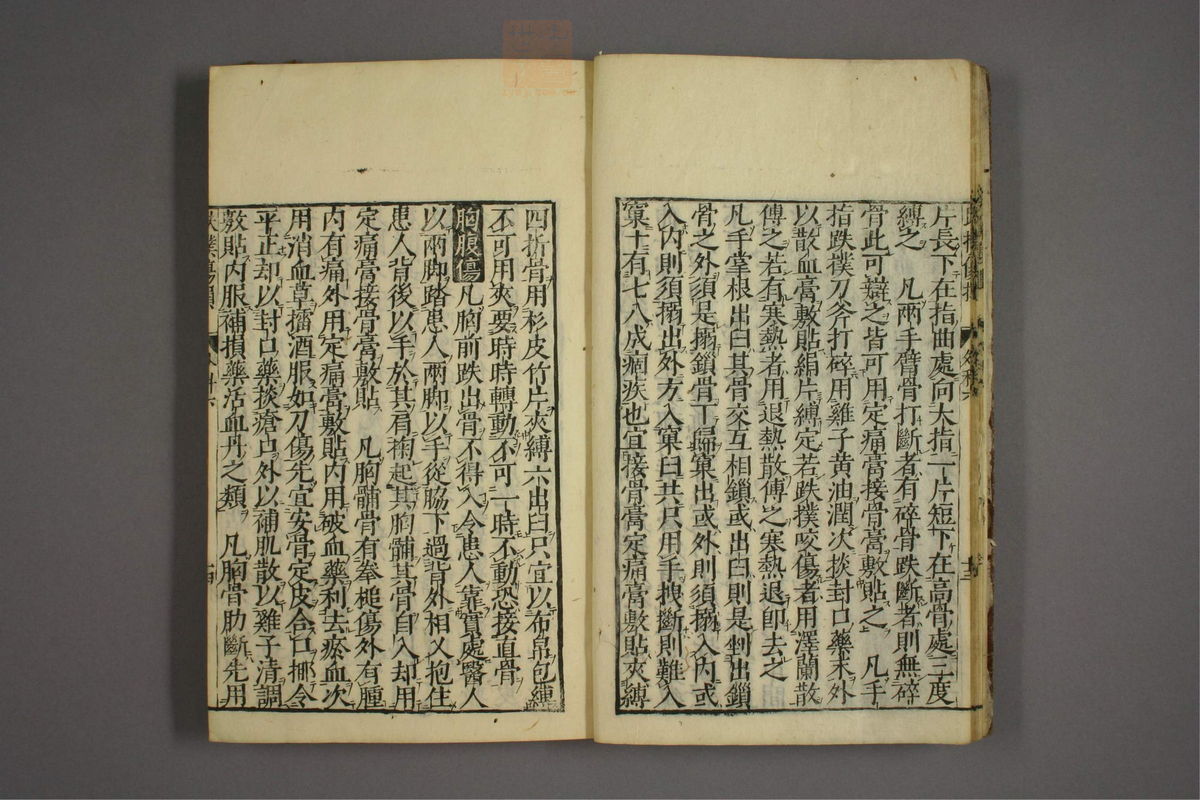 片長下在指曲處向大指一片短下在高骨處三度
縛之　凡兩手臂骨打斷者有碎骨跌斷者則無碎
骨此可辯之皆可用定痛膏接骨膏敷貼之　凡手
指跌撲刀斧打碎用雞子黃油潤次掞封口藥末外
以散血膏敷貼絹片縛定若跌撲咬傷者用澤蘭散
傅之若有寒熱者用退熱散傅之寒熱退卽去之
凡手掌根出臼其骨交互相鎖或出臼則是剉出鎖
骨之外須是搦鎖骨下歸窠出或外則須搦入內或
入內則須搦出外方入窠臼共只用手拽斷則難入
窠十有七八成痼疾也宜接骨膏定痛膏敷貼夾縛
四折骨用杉皮竹片夾縛六出臼只宜以布帛包縛
不可用夾要時時轉動不可一時不動恐接直骨
胸腹傷　凡胸前跌出骨不得入令患人靠實處醫人
以兩脚踏患人兩脚以手從脇下過背外相叉抱住
患人背後以手於其肩掬起其胸脯其骨自入却用
定痛膏接骨膏敷貼　凡胸脯骨有拳槌傷外有腫
內有痛外用定痛膏敷貼內用破血藥利去瘀血次
用消血草擂酒服如刀傷先宜安骨定皮合口挪令
平正却以封口藥掞瘡口外以補肌散以雞子清調
敷貼內服補損藥活血丹之類　凡胸骨肋斷先用